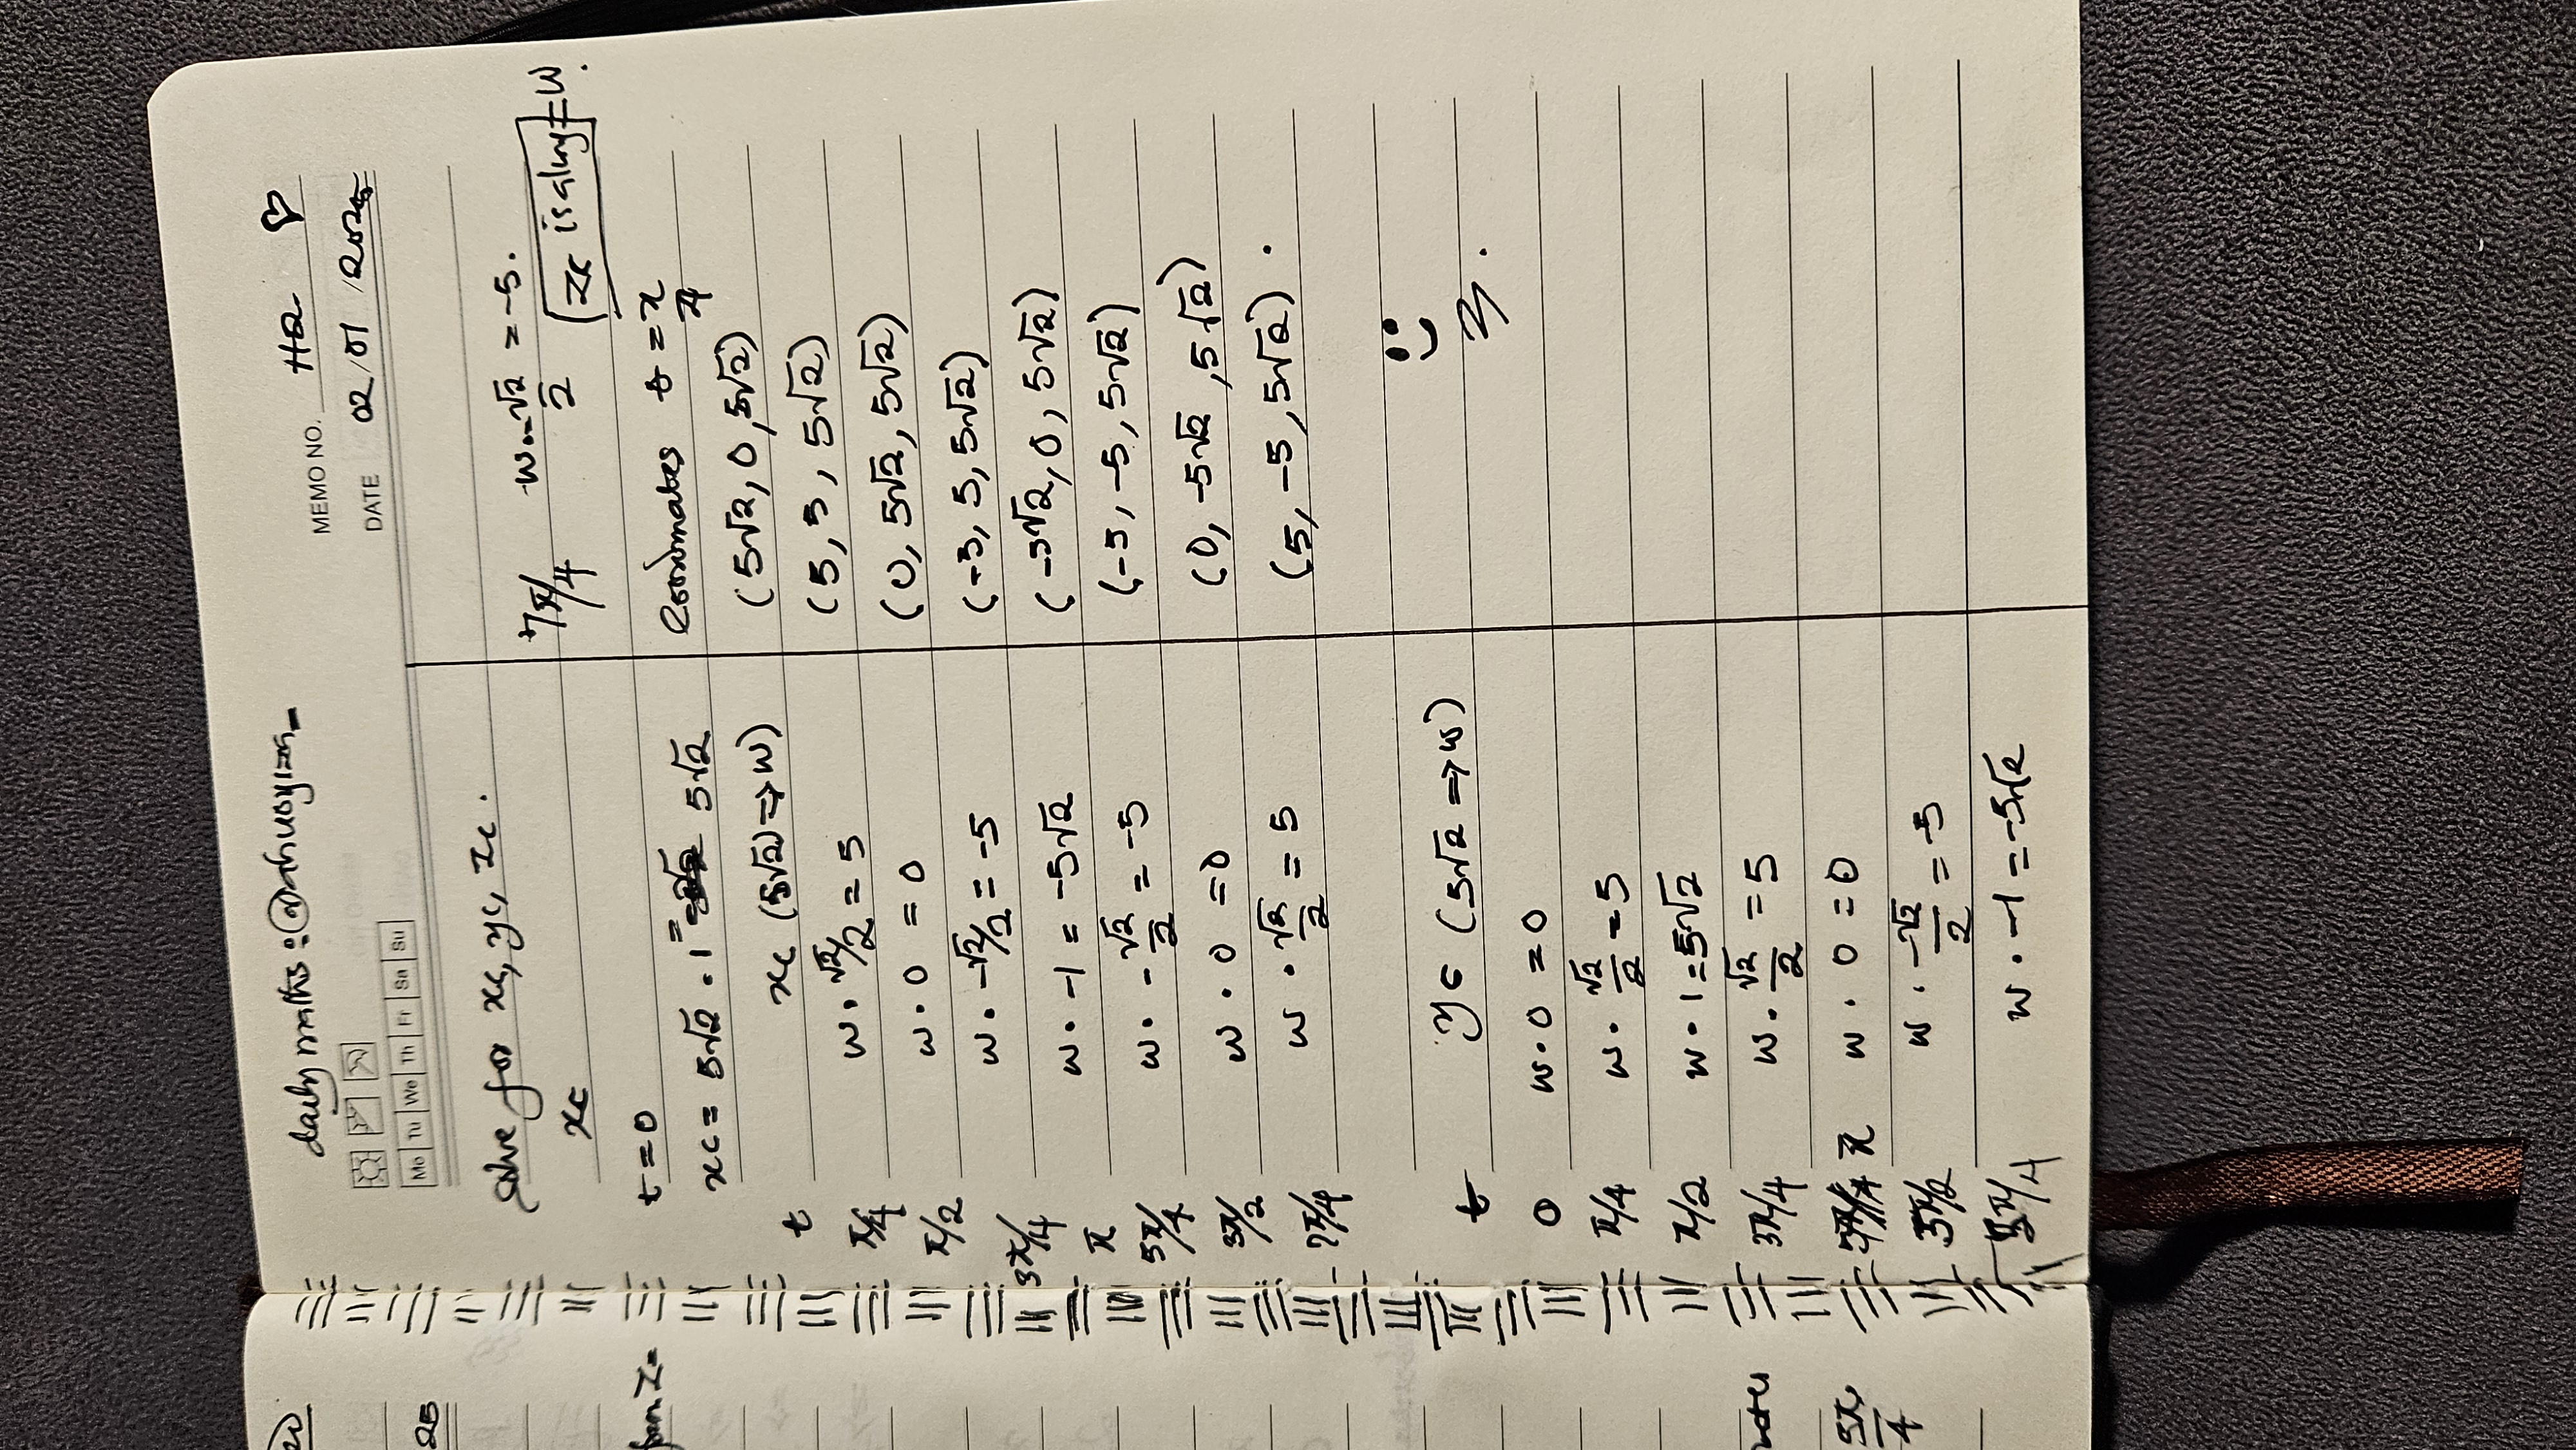 daily maths:
MEMO NO. #2 ♡
DATE 02/01/2025
Mo Tu We Th Fr Sa Su
25
solve for xc, yc, zc.
xc
t = 0
xc = 5√2 · 1 = 5√2
t xc (5√2 => w)
π/4 w · √2/2 = 5
π/2 w · 0 = 0
3π/4 w · -√2/2 = -5
π w · -1 = -5√2
5π/4 w · -√2/2 = -5
3π/2 w · 0 = 0
7π/4 w · √2/2 = 5
t yc (5√2 => w)
0 w · 0 = 0
π/4 w · √2/2 = 5
π/2 w · 1 = 5√2
3π/4 w · √2/2 = 5
π w · 0 = 0
w · -√2/2 = -5
w · -1 = -5√2
7π/4 w · -√2/2 = -5.
zc is always = w.
Coordinates
(5√2, 0, 5√2)
(5, 5, 5√2)
(0, 5√2, 5√2)
(-5, 5, 5√2)
(-5√2, 0, 5√2)
(-5, -5, 5√2)
(0, -5√2, 5√2)
(5, -5, 5√2) .
5π/4